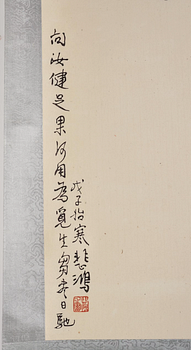 向汝健足果何用為覓生芻盡日馳
戊子始寒悲鴻